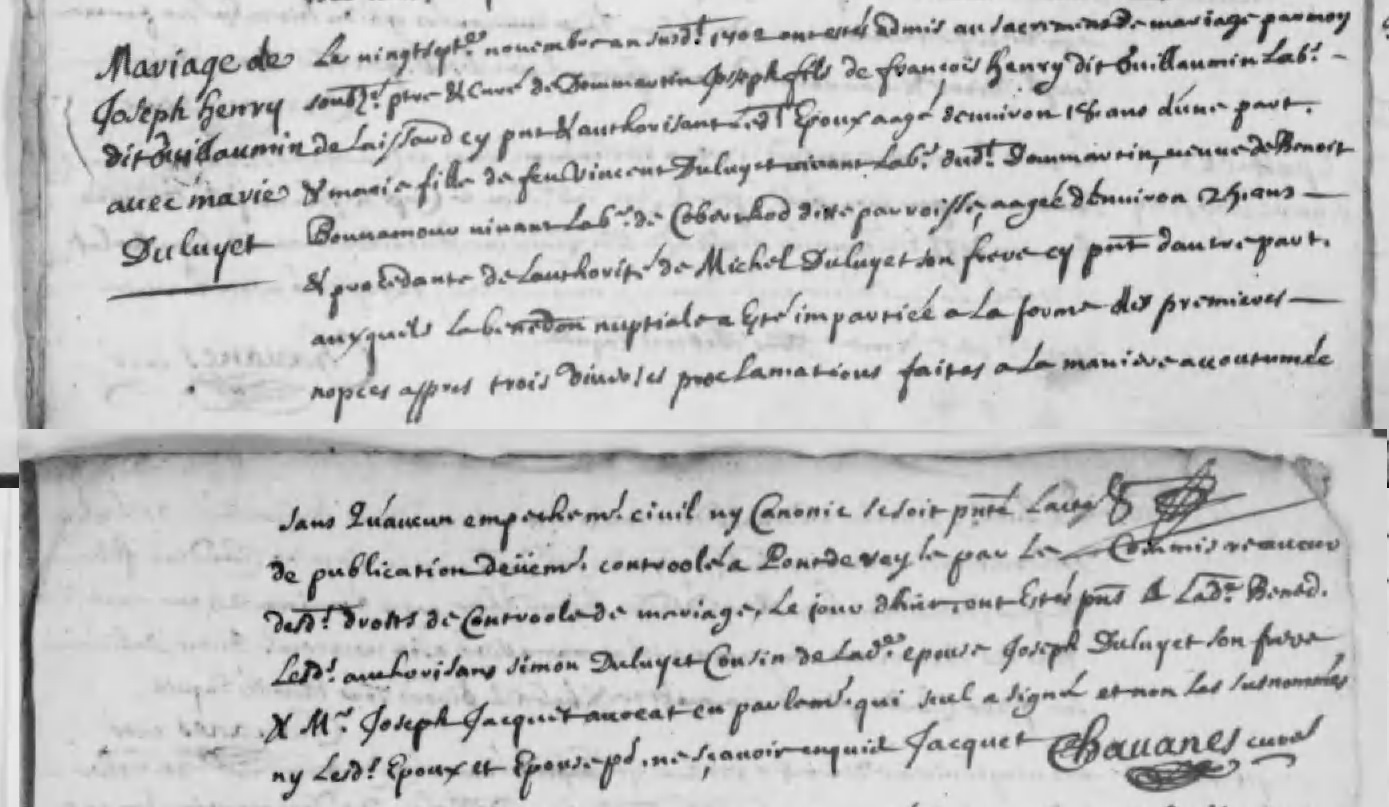 Mariage de
Joseph henry
dit Guillaumin
avec marie
Duluyet
Le vingtsept.e novembre an susd.t 1702 ont estés admis au sacrement de mariage par moy
soubz.é ptre & Curé de Dommartin Joseph fils de françois henry dit Guillaumin Lab.r
de Laissard cy pnt & authorisant led.t Epoux aagé denviron 18. ans d'une part.
& marie fille de feu Vincent Duluyet vivant Lab.r dud.t Dommartin, veuve de Benoit
Bonnamour vivant Lab.r de parroisse, aagée d'environ ans
& procedante de Lauthorité de Michel Duluyet son frere cy pnt dautre part.
auxquels la benedon nuptiale a Eté impartiée a La forme des premieres
nopces appres trois diverses proclamations faites a La maniere accoutumée
sans Qu'aucun empechem.t civil ny Canonic se soit pnté Lacte
de publication deüem.t controolé a Pont de veyle par Le Commis receveur
desd.t droits de Controole de mariage, Le jour d'hier, ont Estés pnts A Lad.e Bened.
Lesd.t authorisans simon Duluyet Cousin de Lad.e epouse Joseph Duluyet son frere
& M.re Joseph Jacquet avocat en parlem.t qui seul a signé et non Les susnommés
ny Lesd.t Epoux et Epouse pd. ne sçavoir enquis Jacquet Chavanes curé